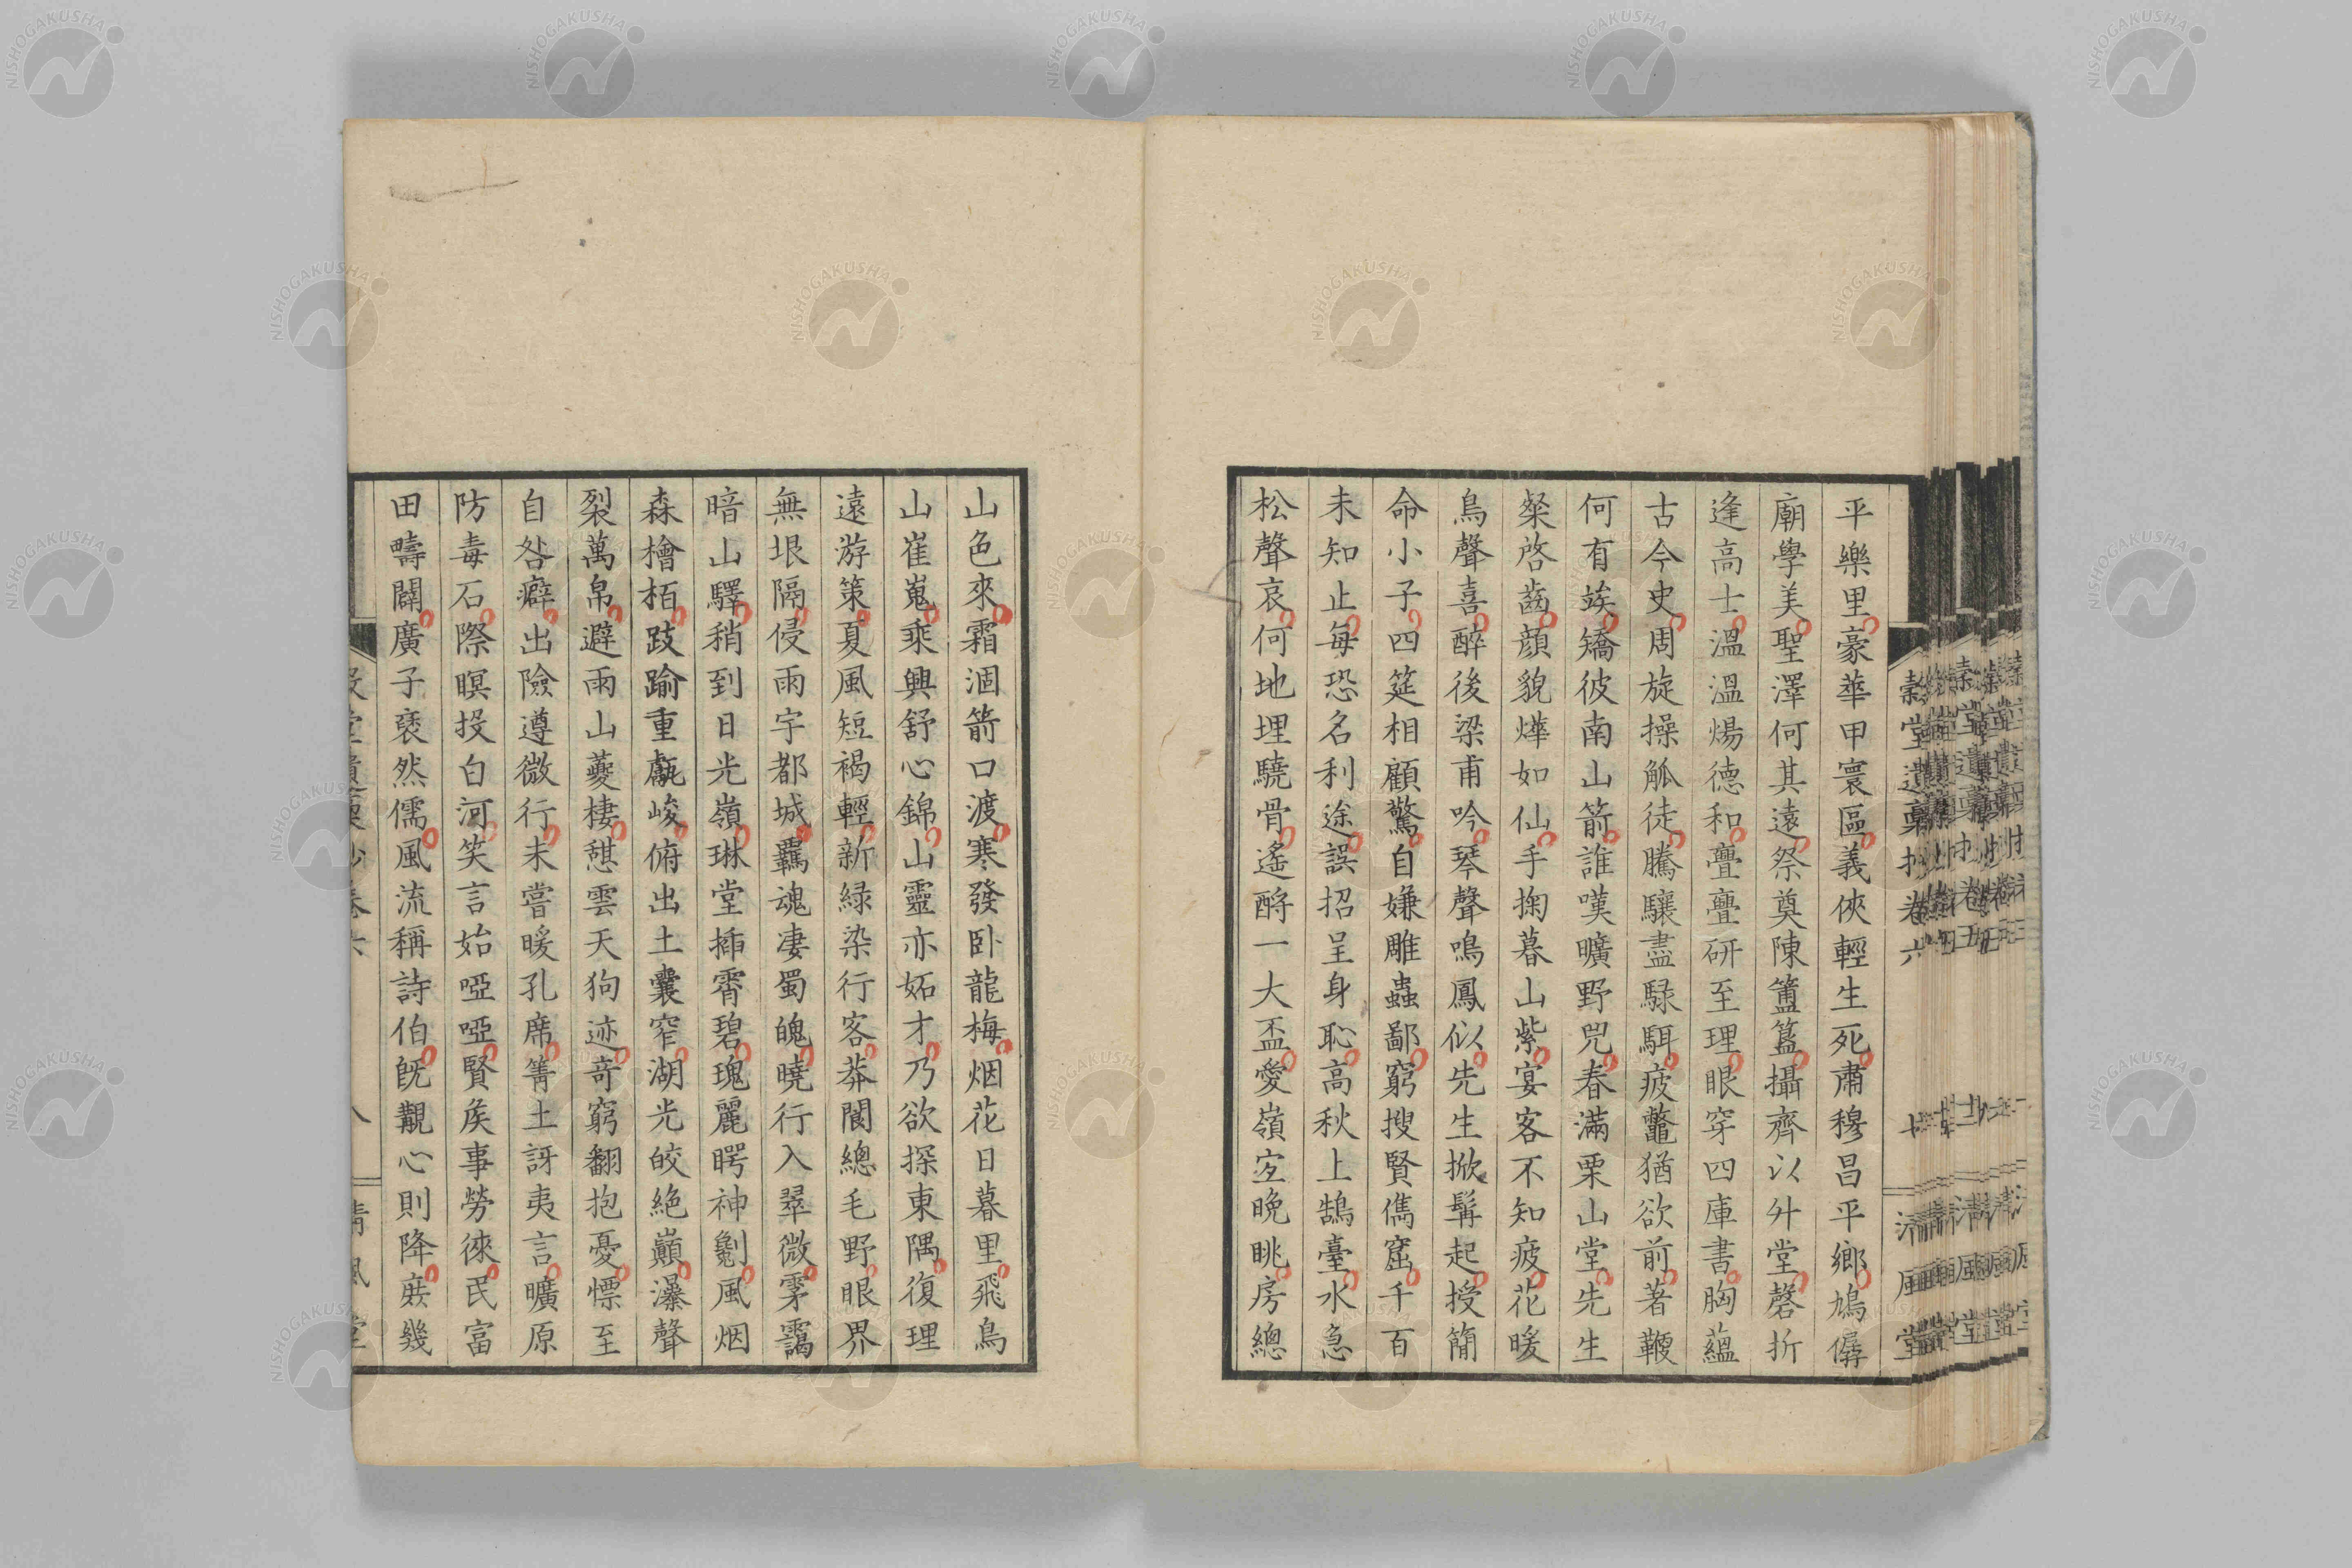 平樂里豪華甲寰區義俠輕生死肅穆昌平鄉鳩僝
廟學美聖澤何其遠祭奠陳簠簋攝齊以升堂磬折
逢高士溫溫煬德和亹亹研至理眼穿四庫書胸蘊
古今史周旋操觚徒騰驤盡騄駬疲鼈猶欲前著鞭
何有竢矯彼南山箭誰嘆曠野兕春滿栗山堂先生
粲啓齒顔貌燁如仙手掬暮山紫宴客不知疲花暖
鳥聲喜醉後梁甫吟琴聲鳴鳳似先生掀髯起授簡
命小子四筵相顧驚自嫌雕蟲鄙窮搜賢儁窟千百
未知止每恐名利途誤招呈身恥高秋上鵠臺水急
松聲哀何地埋驍骨遙酹一大盃愛嶺宓晚眺房總
山色來霜涸箭口渡寒發卧龍梅烟花日暮里飛鳥
山崔嵬乘興舒心錦山靈亦妬才乃欲探東隅復理
遠游策夏風短褐輕新緑染行客莽閬總毛野眼界
無垠隔侵雨宇都城羈魂凄蜀魄曉行入翠微霿靄
暗山驛稍到日光嶺琳堂插霄碧瑰麗愕神劖風烟
森檜栢跂踰重甗峻俯出土囊窄湖光皎絶巔瀑聲
裂萬帛避雨山夔棲憇雲天狗迹奇窮翻抱憂慓至
自咎癖出險遵微行未嘗暖孔席箐土訝夷言曠原
防毒石際瞑投白河笑言始啞啞賢矦事勞徠民富
田疇闢廣子裦然儒風流稱詩伯旣覯心則降庻幾
穀堂遺稾抄卷六
八
清風堂